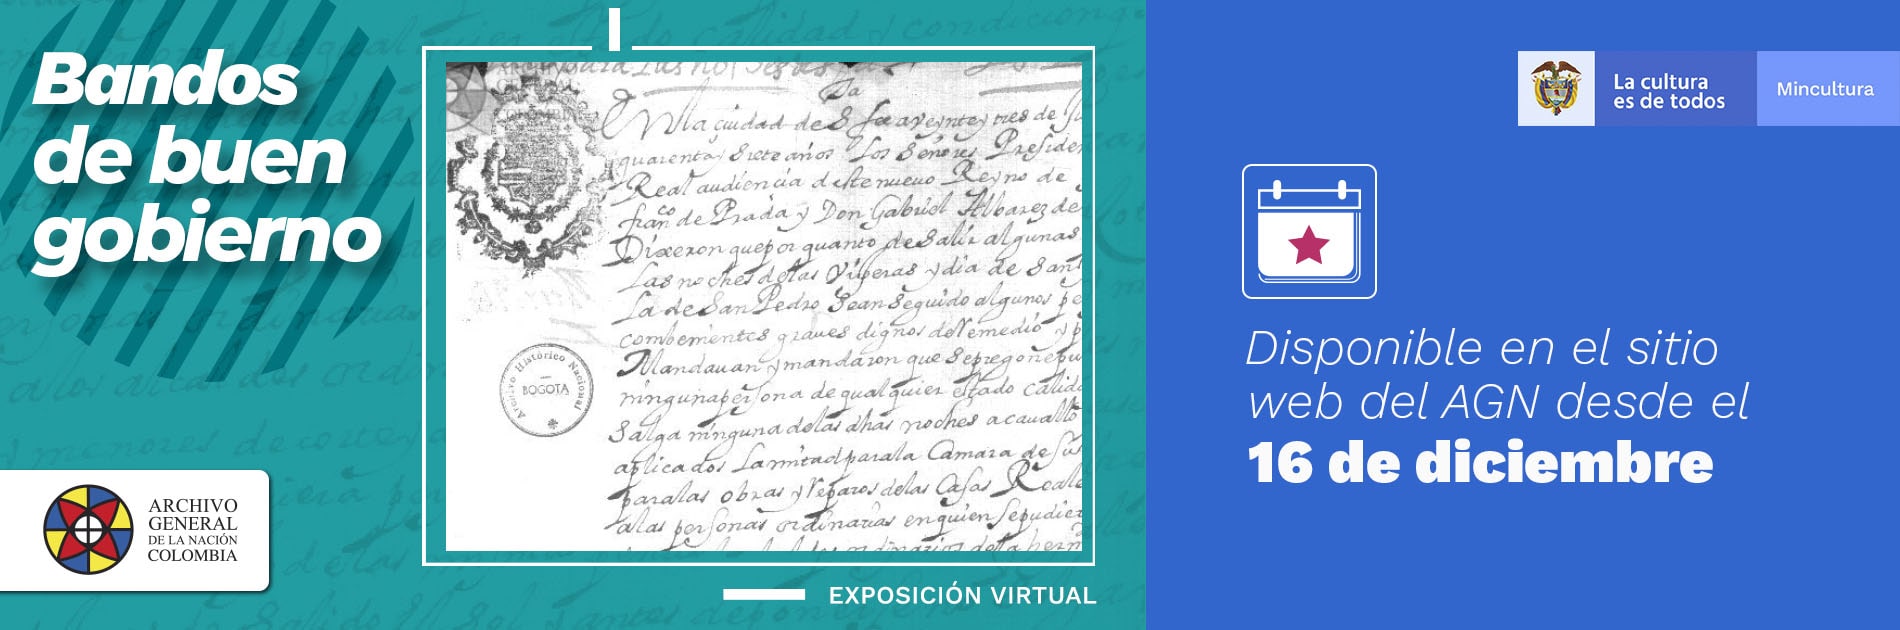 Bandos
de buen
gobierno
ARCHIVO
GENERAL
En la çiudad de S. fee a veynte y tres de
quarenta y Siete años Los Señores Presiden
Real audiencia deste nuevo Reyno de
franco de Prada y Don Gabriel Albarez de
Dixeron que por quanto de Salir algunas
Las noches de las Visperas y dia de San
La de San Pedro Sean Seguido algunos
combenientes graves dignos de Remedio y
Mandavan y mandaron que Sepregone
ninguna persona de qualquier estado calid
Salga ninguna de las dhas noches acauallo
aplicados La mitad para la Camara de Su
para las obras y Reparos de las Casas Reale
a las personas ordinarias en quien Sepudier
Archivo Histórico Nacional
BOGOTA
ARCHIVO
GENERAL
DE LA NACIÓN
COLOMBIA
EXPOSICIÓN VIRTUAL
La cultura
es de todos
Mincultura
Disponible en el sitio
web del AGN desde el
16 de diciembre